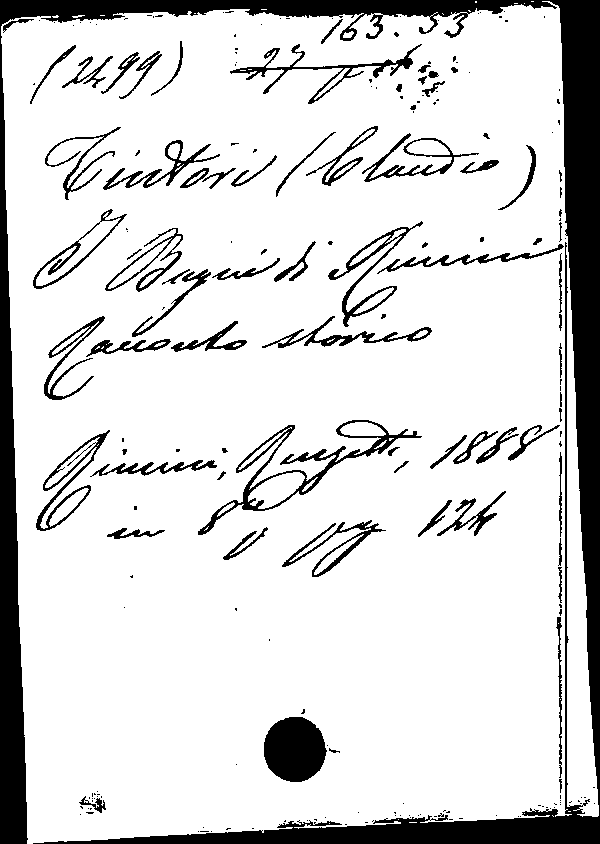 163.53
(2499) 27
Tintori (Claudio)
I Bagni di Rimini
Racconto storico
Rimini, Renzetti, 1888
in 8º pag 124